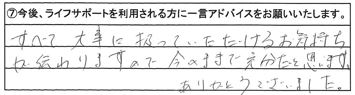 ⑦今後、ライフサポートを利用される方に一言アドバイスをお願いいたします。
すべて大事に扱っていただけるお気持ち
が伝わりますので今のままで充分だと思います。
ありがとうございました。